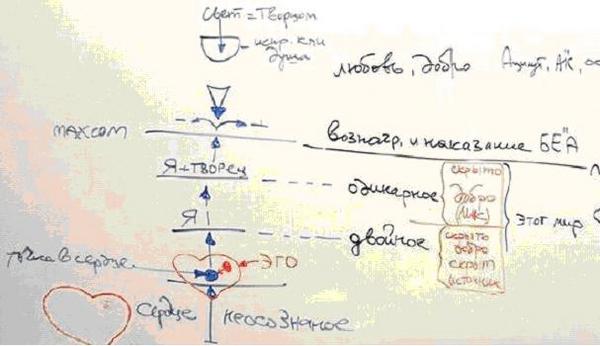 Свет = Творцом
испр. кли
душа
любовь, добро Ацилут, АК, ∞
МАХСОМ
вознагр. и наказание БЕ"А
Я+ТВОРЕЦ
одинарное
скрыто
добро
Этот мир
Я
двойное
скрыто
добро
скрыт
источник
точка в сердце
ЭГО
сердце
неосознаное